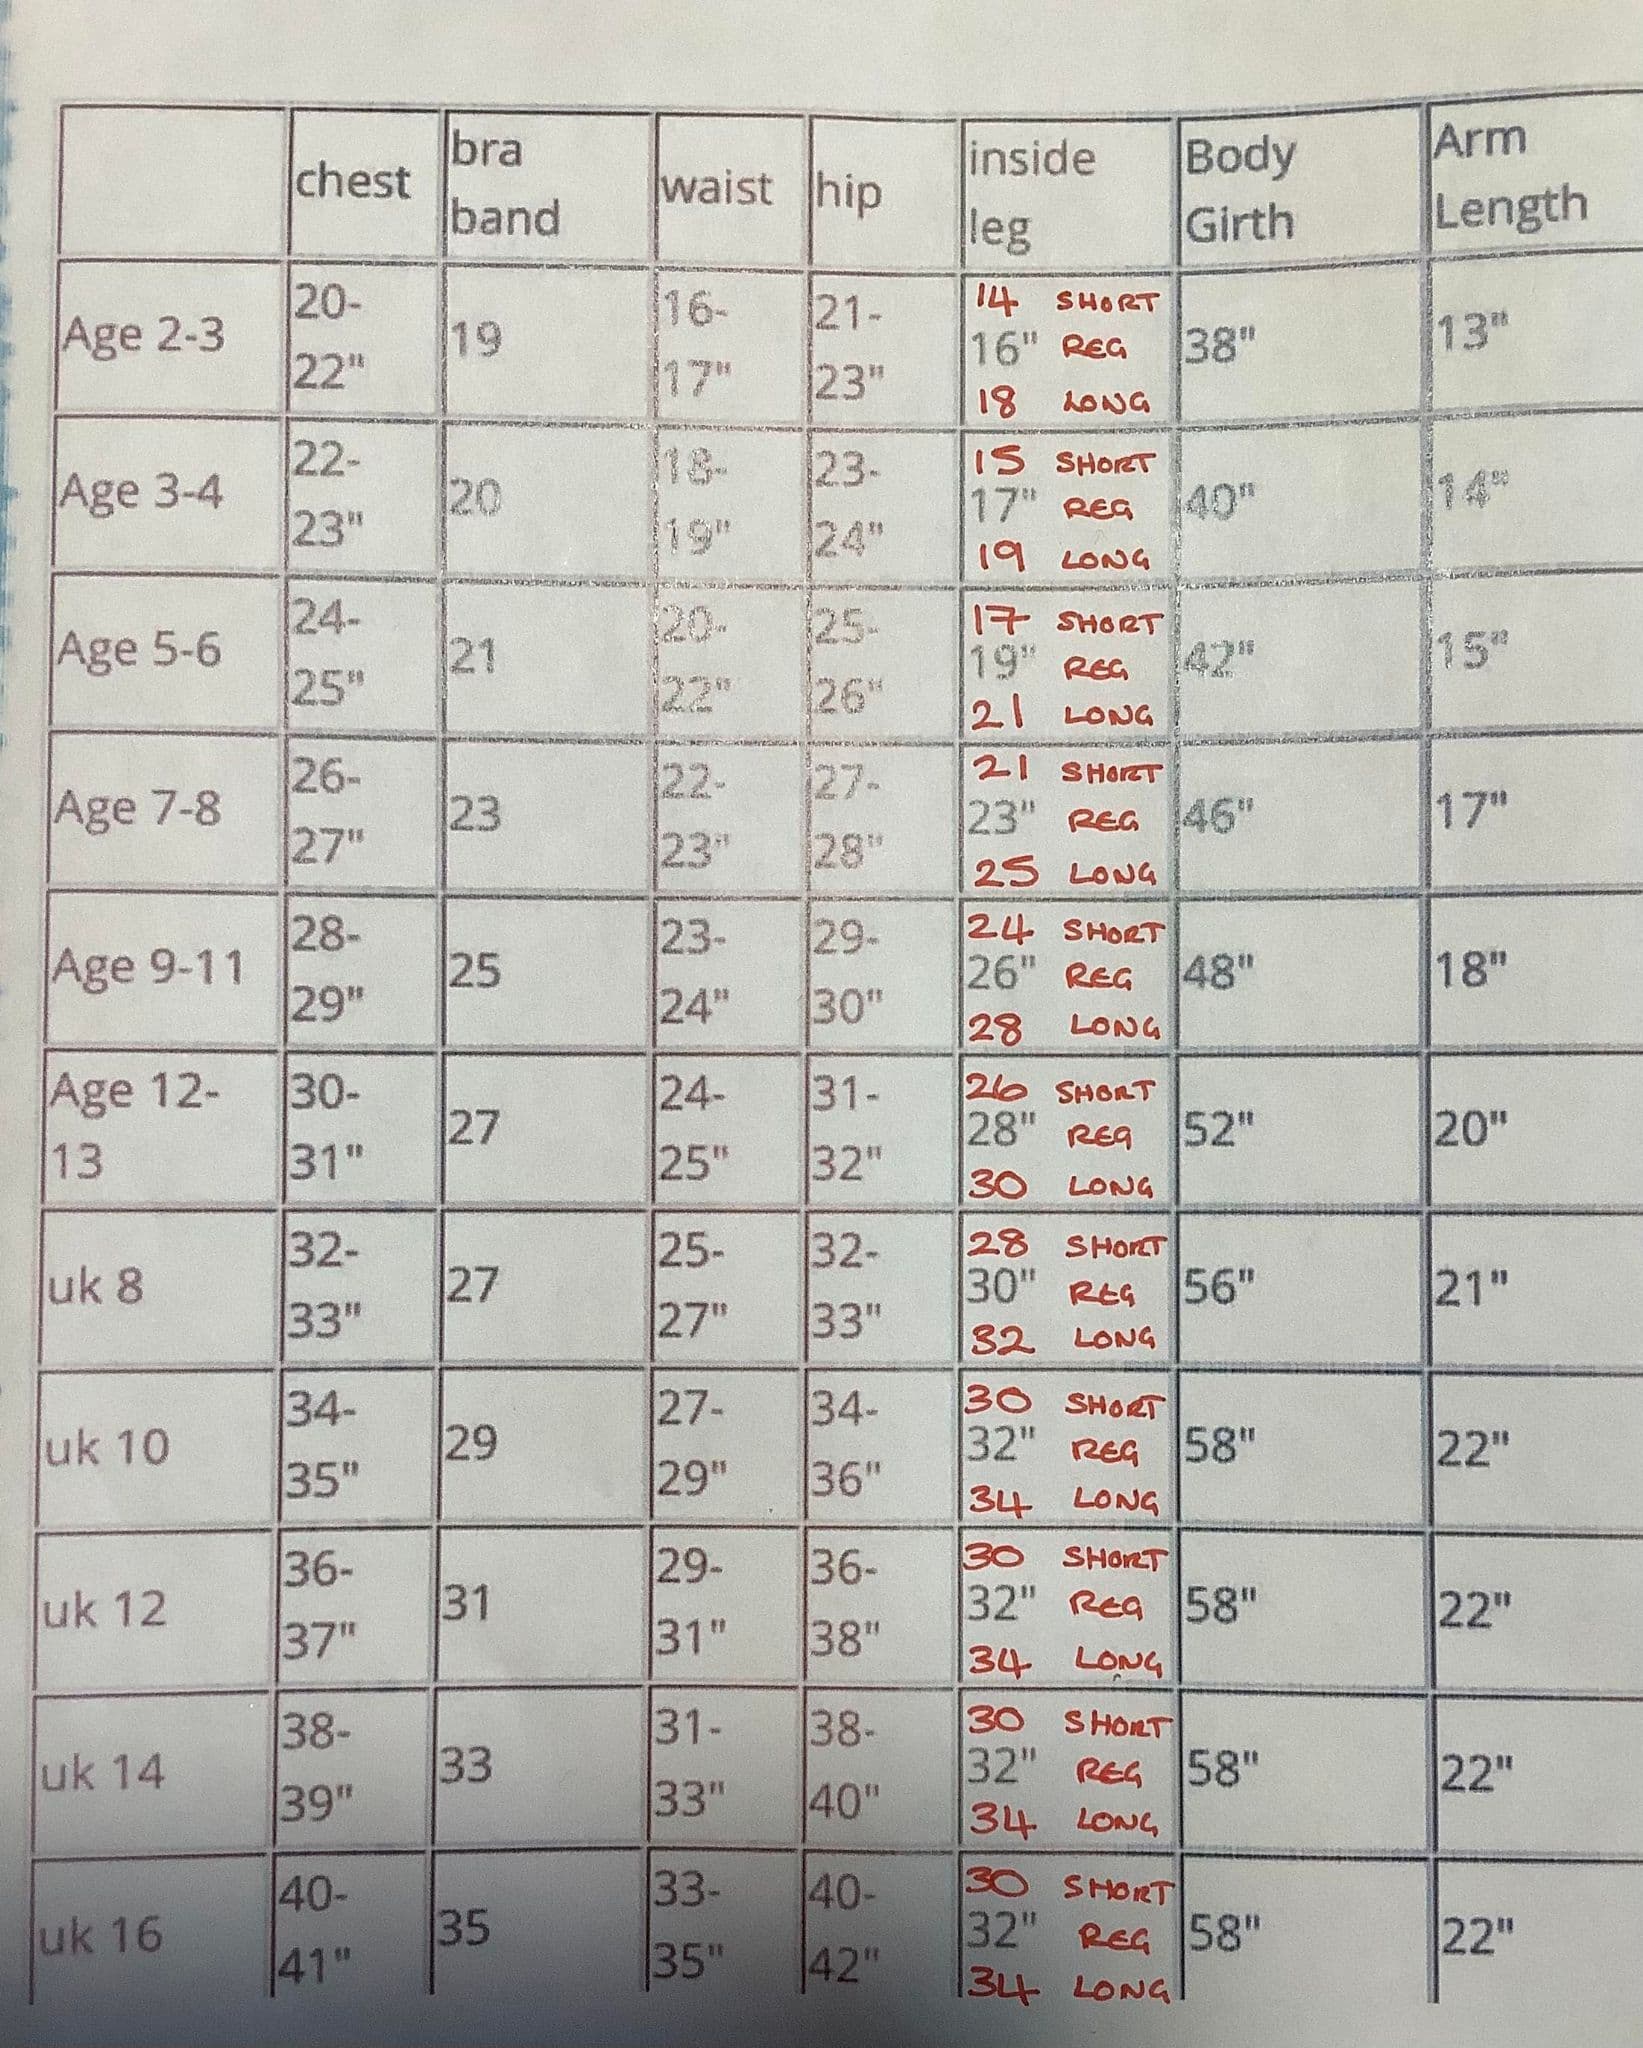 chest bra band waist hip inside leg Body Girth Arm Length
Age 2-3 20-22" 19 16-17" 21-23" 14 SHORT 16" REG 18 LONG 38" 13"
Age 3-4 22-23" 20 18-19" 23-24" 15 SHORT 17" REG 19 LONG 40" 14"
Age 5-6 24-25" 21 20-22" 25-26" 17 SHORT 19" REG 21 LONG 42" 15"
Age 7-8 26-27" 23 22-23" 27-28" 21 SHORT 23" REG 25 LONG 46" 17"
Age 9-11 28-29" 25 23-24" 29-30" 24 SHORT 26" REG 28 LONG 48" 18"
Age 12-13 30-31" 27 24-25" 31-32" 26 SHORT 28" REG 30 LONG 52" 20"
uk 8 32-33" 27 25-27" 32-33" 28 SHORT 30" REG 32 LONG 56" 21"
uk 10 34-35" 29 27-29" 34-36" 30 SHORT 32" REG 34 LONG 58" 22"
uk 12 36-37" 31 29-31" 36-38" 30 SHORT 32" REG 34 LONG 58" 22"
uk 14 38-39" 33 31-33" 38-40" 30 SHORT 32" REG 34 LONG 58" 22"
uk 16 40-41" 35 33-35" 40-42" 30 SHORT 32" REG 34 LONG 58" 22"